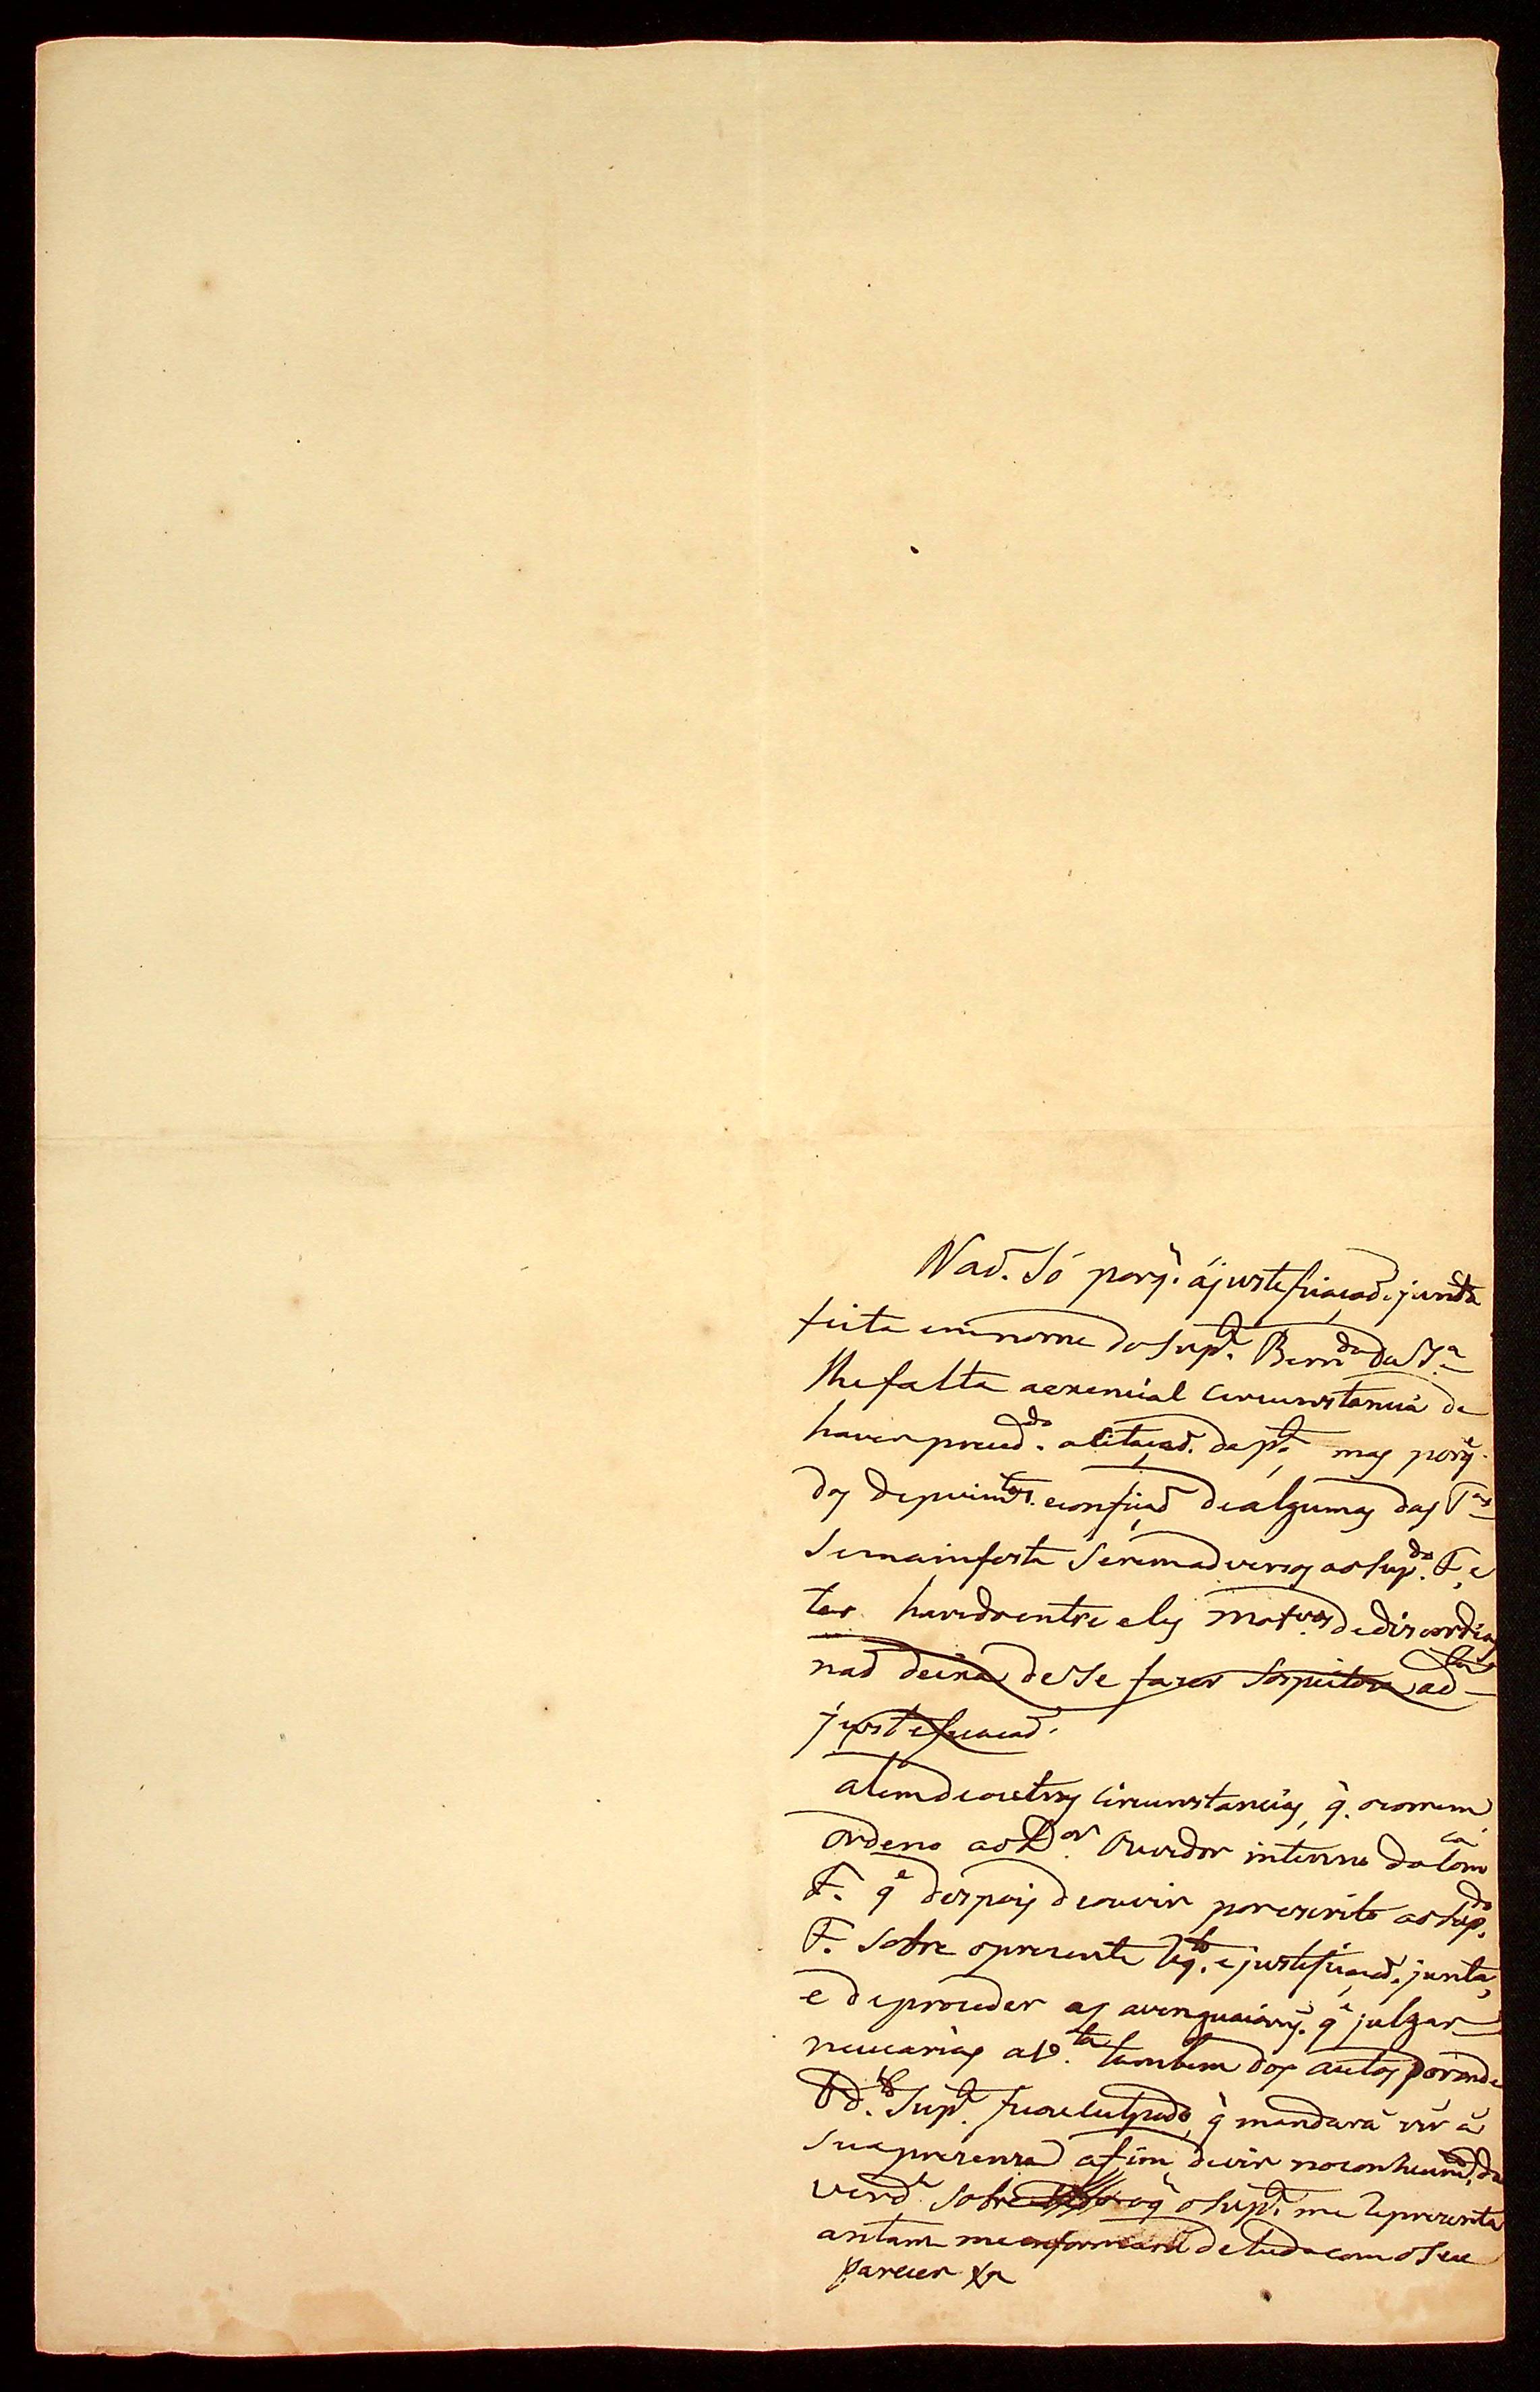 Naõ. Só porq̃. ájustefiaçaõ. junta
feita em nome do Sup.e Bern.do da S.a
lhe falta aexencial circunstancia de
haver preced.do a citaçaõ. da p.te, mas porq̃.
dos depoim.tos. econfiçaõ dealgumas das T.as
Semainfesta Seremadversos aoSup.do F., e
ter havidoentre eles motivos dediscordias
naõ deixa desse fazer Sospeitoza ad.ta
justeficaçaõ.
alemdeoutras circunstancias, q̃. ocorrem
Ordeno aoD.or Ouvidor interino da Com.ca
F. q.e despois deouvir porescrito ao Sup.do
F. Sobre oprezente req.to, ejustificaçaõ. junta,
e deproceder as averiguaçoins. q.e julgar
necesarias av.ta tambem dos autos poronde
o d.o Sup.e ficouculpado, q̃ mandará vir á
Suaprezensa afim devir noconhecim.to da
verd.e Sobre oq̃ oSup.e me reprezenta
entam meenformará detudo com oSeu
parecer &a